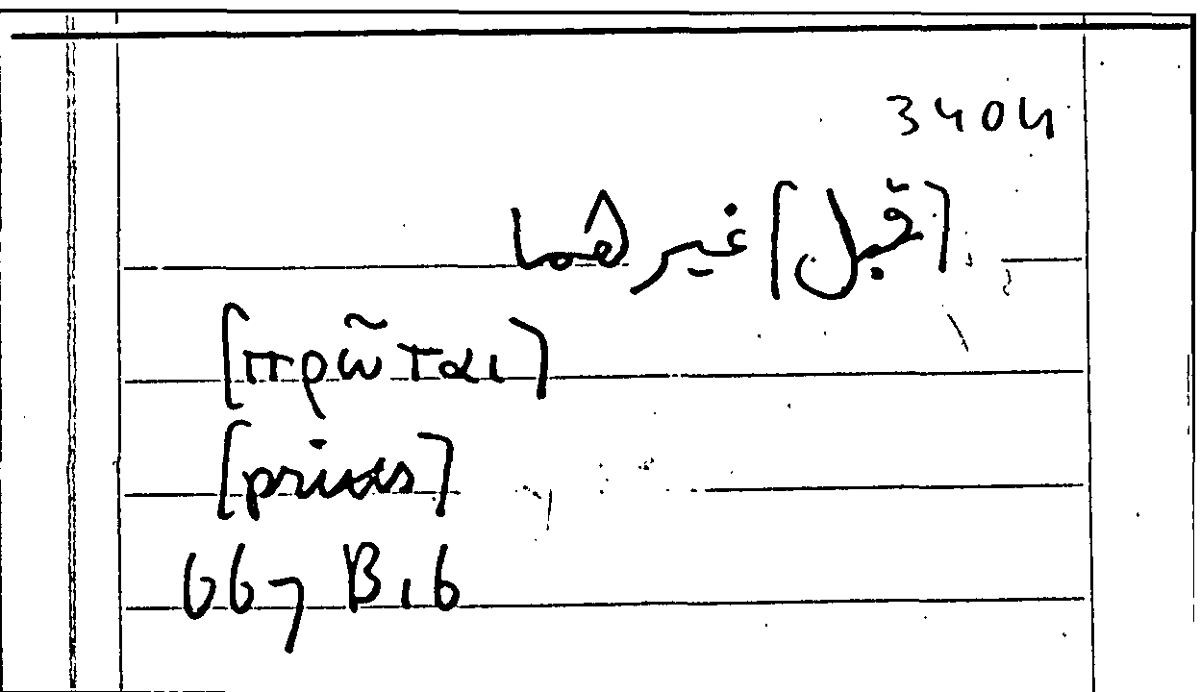 3404
[قبل] غيرهما
[πρῶται]
[primas]
667 B16